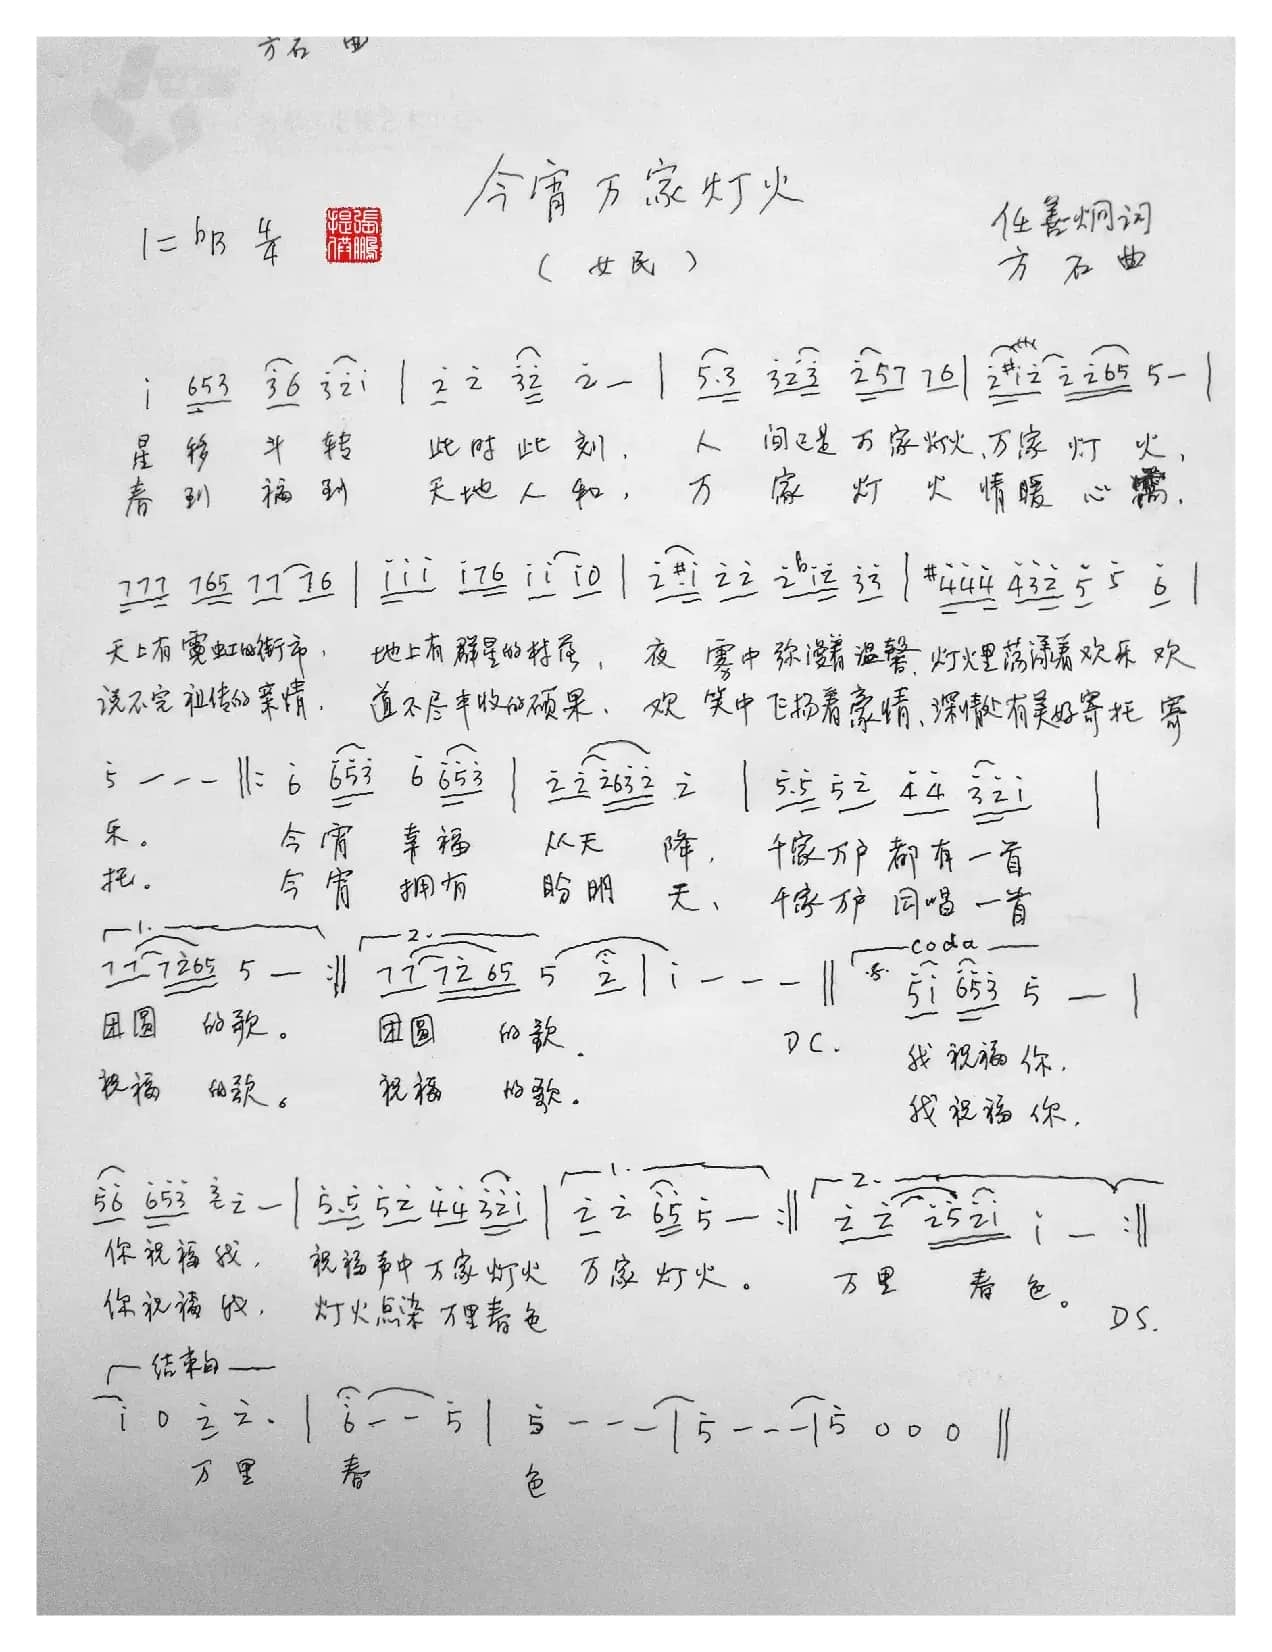 方石 曲
今宵万家灯火
1=bB 4/4
張鵬提供
(女民)
任善炯词
方石曲
i 653 36 32i | 2 2 32 2 — | 5.3 323 257 76 | 2#i2 2265 5 — |
星移斗转 此时此刻, 人间已是万家灯火、万家灯火,
春到福到 天地人和, 万家灯火情暖心
777 765 77 76 | iii i76 ii i0 | 2#i 22 2bi2 33 | #444 432 5 5 6 |
天上有霓虹的街市, 地上有群星的村落, 夜雾中弥漫着温馨、灯火里荡漾着欢乐 欢
说不完祖传的亲情, 道不尽丰收的硕果、 欢笑中飞扬着豪情、深情处有美好寄托 寄
5 — — — ‖: 6 653 6 653 | 2 2 2632 2 | 5.5 52 44 32i |
乐。 今宵幸福 从天降, 千家万户都有一首
托。 今宵拥有 盼明天、 千家万户同唱一首
1. 2. coda
77 7265 5 — :‖ 77 72 65 5 2 | i — — — ‖ 5i 653 5 — |
团圆的歌。 团圆的歌. DC. 我祝福你,
祝福的歌。 祝福的歌。 我祝福你,
1. 2.
56 653 2 2 — | 5.5 52 44 32i | 2 2 65 5 — :‖ 2 2 2521 i — :‖
你祝福我, 祝福声中万家灯火 万家灯火。 万里春色。
你祝福我, 灯火点染万里春色 DS.
结束句
i 0 2 2. | 6 — — 5 | 5 — — — | 5 — — — | 5 0 0 0 ‖
万里 春 色